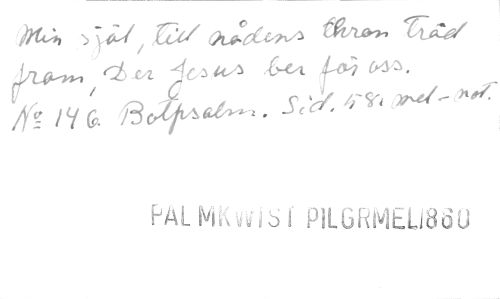 Min själ, till nådens thron träd
fram, Der Jesus ber för oss.
No 146. Botpsalm. Sid. 58. mel-not.
PALMKWIST PILGRMEL1860